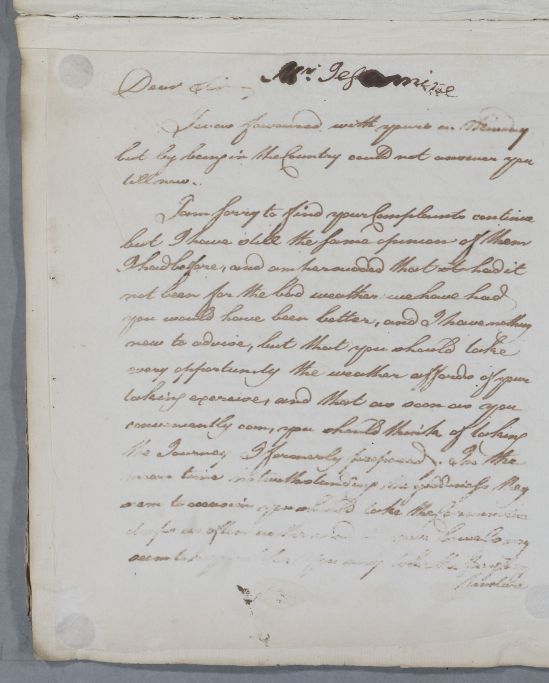 Mr. Jessamine
Dear Sir,
I was favoured with yours on Thursday
but by being in the Country could not answer you
till now.
I am sorry to find your Complaints continue
but I have still the same opinion of them
I had before, and am perswaded that it had it
not been for the bad weather we have had
you would have been better, and I have nothing
new to advise, but that you should take
every opportunity the weather affords of your
taking exercise, and that as soon as you
conveniently can, you should think of taking
the Journey I formerly proposed. In the
mean time notwithstanding the giddiness they
seem to occasion you should take the
drops as often as
seem to you may take the